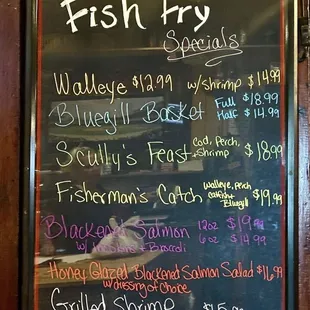 Fish Fry
Specials
Walleye $12.99 w/shrimp $14.99
Bluegill Basket Full $18.99
Half $14.99
Scully's Feast Cod, Perch, +shrimp $18.99
Fisherman's Catch Walleye, perch catfish + Bluegill $19.99
Blackened Salmon 12oz $19.99
w/ + Broccoli 6oz $14.99
Honey Glazed Blackened Salmon Salad $16.99
w/dressing of choice
Grilled Shrimp